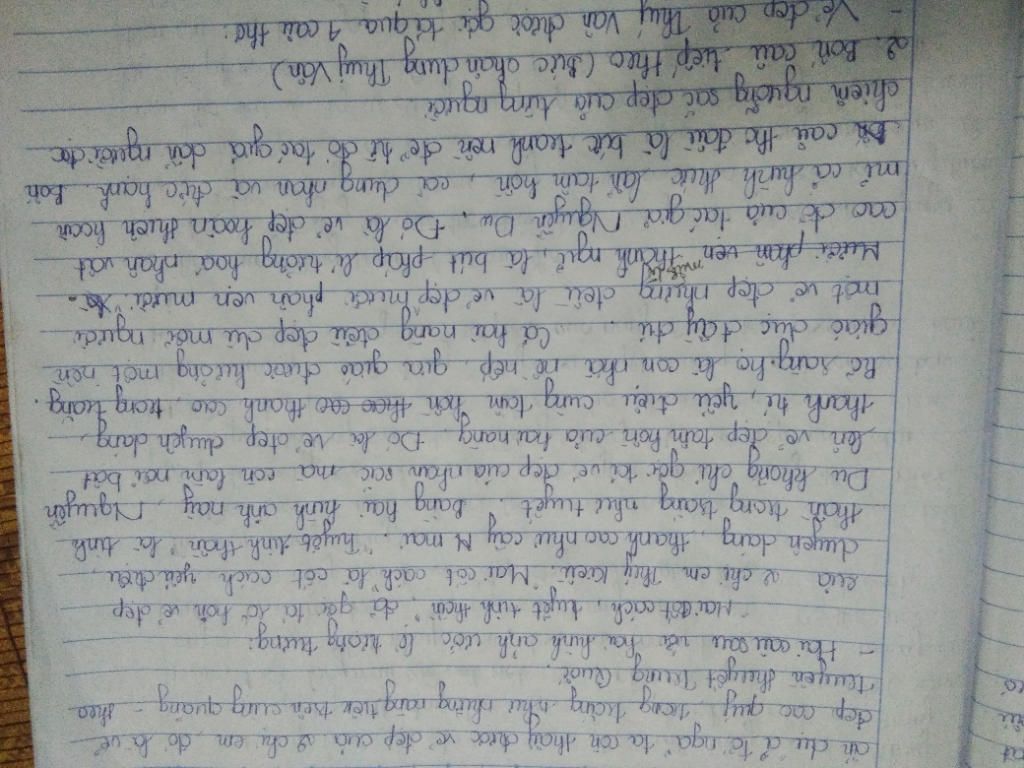 ẩn dụ ả tố nga ta còn thấy được vẻ đẹp của 2 chị em đó là vẻ
đẹp cao quý, trong trắng như những nàng tiên trên cung quảng - theo
truyền thuyết Trung Quốc
- Hai câu sau với hai hình ảnh ước lệ tượng trưng:
Mai cốt cách, tuyết tinh thần, đã gợi tả rõ hơn vẻ đẹp
của 2 chị em Thuý Kiều. Mai cốt cách là cốt cách yểu điệu,
duyên dáng, thanh cao như cây mai, "Tuyết tinh thần" là tinh
thần trong trắng như tuyết. Bằng hai hình ảnh này Nguyễn
Du không chỉ gợi tả vẻ đẹp của nhan sắc mà còn làm nổi bật
lên vẻ đẹp tâm hồn của hai nàng. Đó là vẻ đẹp duyên dáng,
thanh tú, yểu điệu cùng tâm hồn theo cao thanh cao, trong trắng.
Rõ ràng họ là con nhà nề nếp, gia giáo được hưởng một nền
giáo dục đầy đủ. Cả hai nàng đều đẹp dù mỗi người
một vẻ đẹp nhưng đều là vẻ đẹp mười phân vẹn mười.
Mười phân vẹn thành ngữ, là bút pháp lí tưởng hoá nhân vật
cao độ của tác giả Nguyễn Du. Đó là vẻ đẹp hoàn thiện hoàn
mĩ cả hình thức lẫn tâm hồn, cả dung nhan và đức hạnh Bốn
câu thơ đầu là bức tranh nền để từ đó tác giả dẫn người đọc
chiêm ngưỡng sắc đẹp của từng người.
2. Bốn câu tiếp theo (Bức chân dung Thuý Vân)
- Vẻ đẹp của Thuý Vân được gợi tả qua 4 câu thơ: